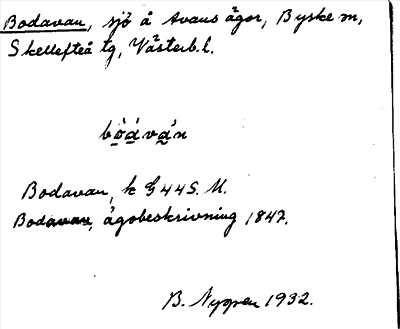 Bodavan, sjö å Avans ägor, Byske sn,
Skellefteå tg, Västerb.l.
bòdávàn
Bodavan, k G44S. M.
Bodavan, ägobeskrivning 1847.
B. Nygren 1932.